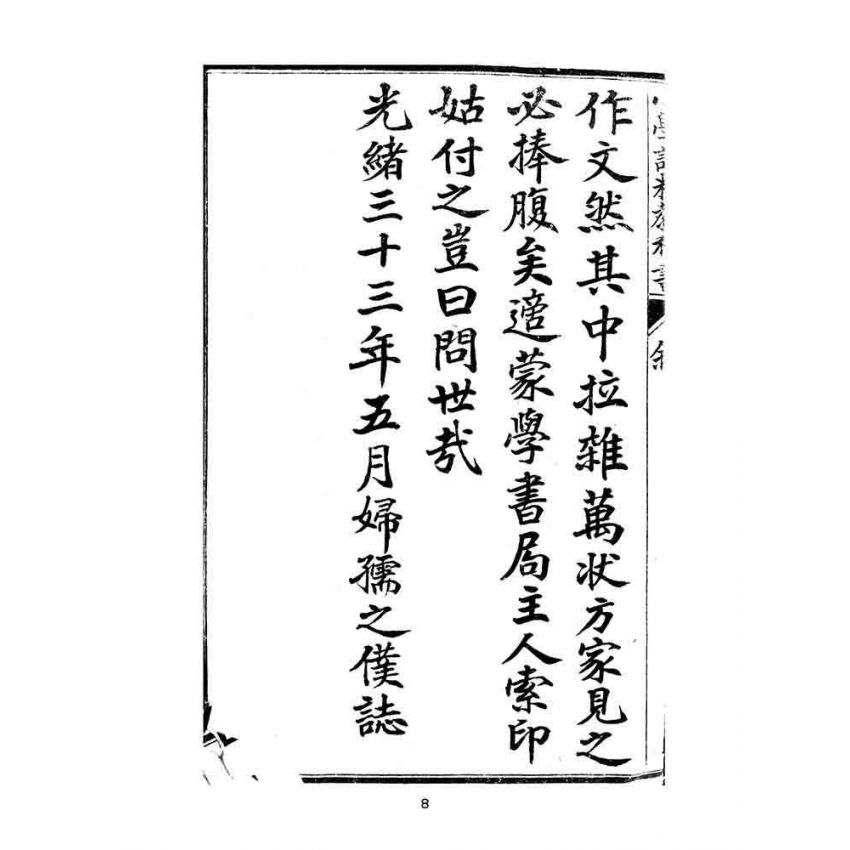 學課教科書 敘
作文然其中拉雜萬状方家見之
必捧腹矣適蒙學書局主人索印
姑付之豈曰問世哉
光緒三十三年五月婦孺之僕誌
8